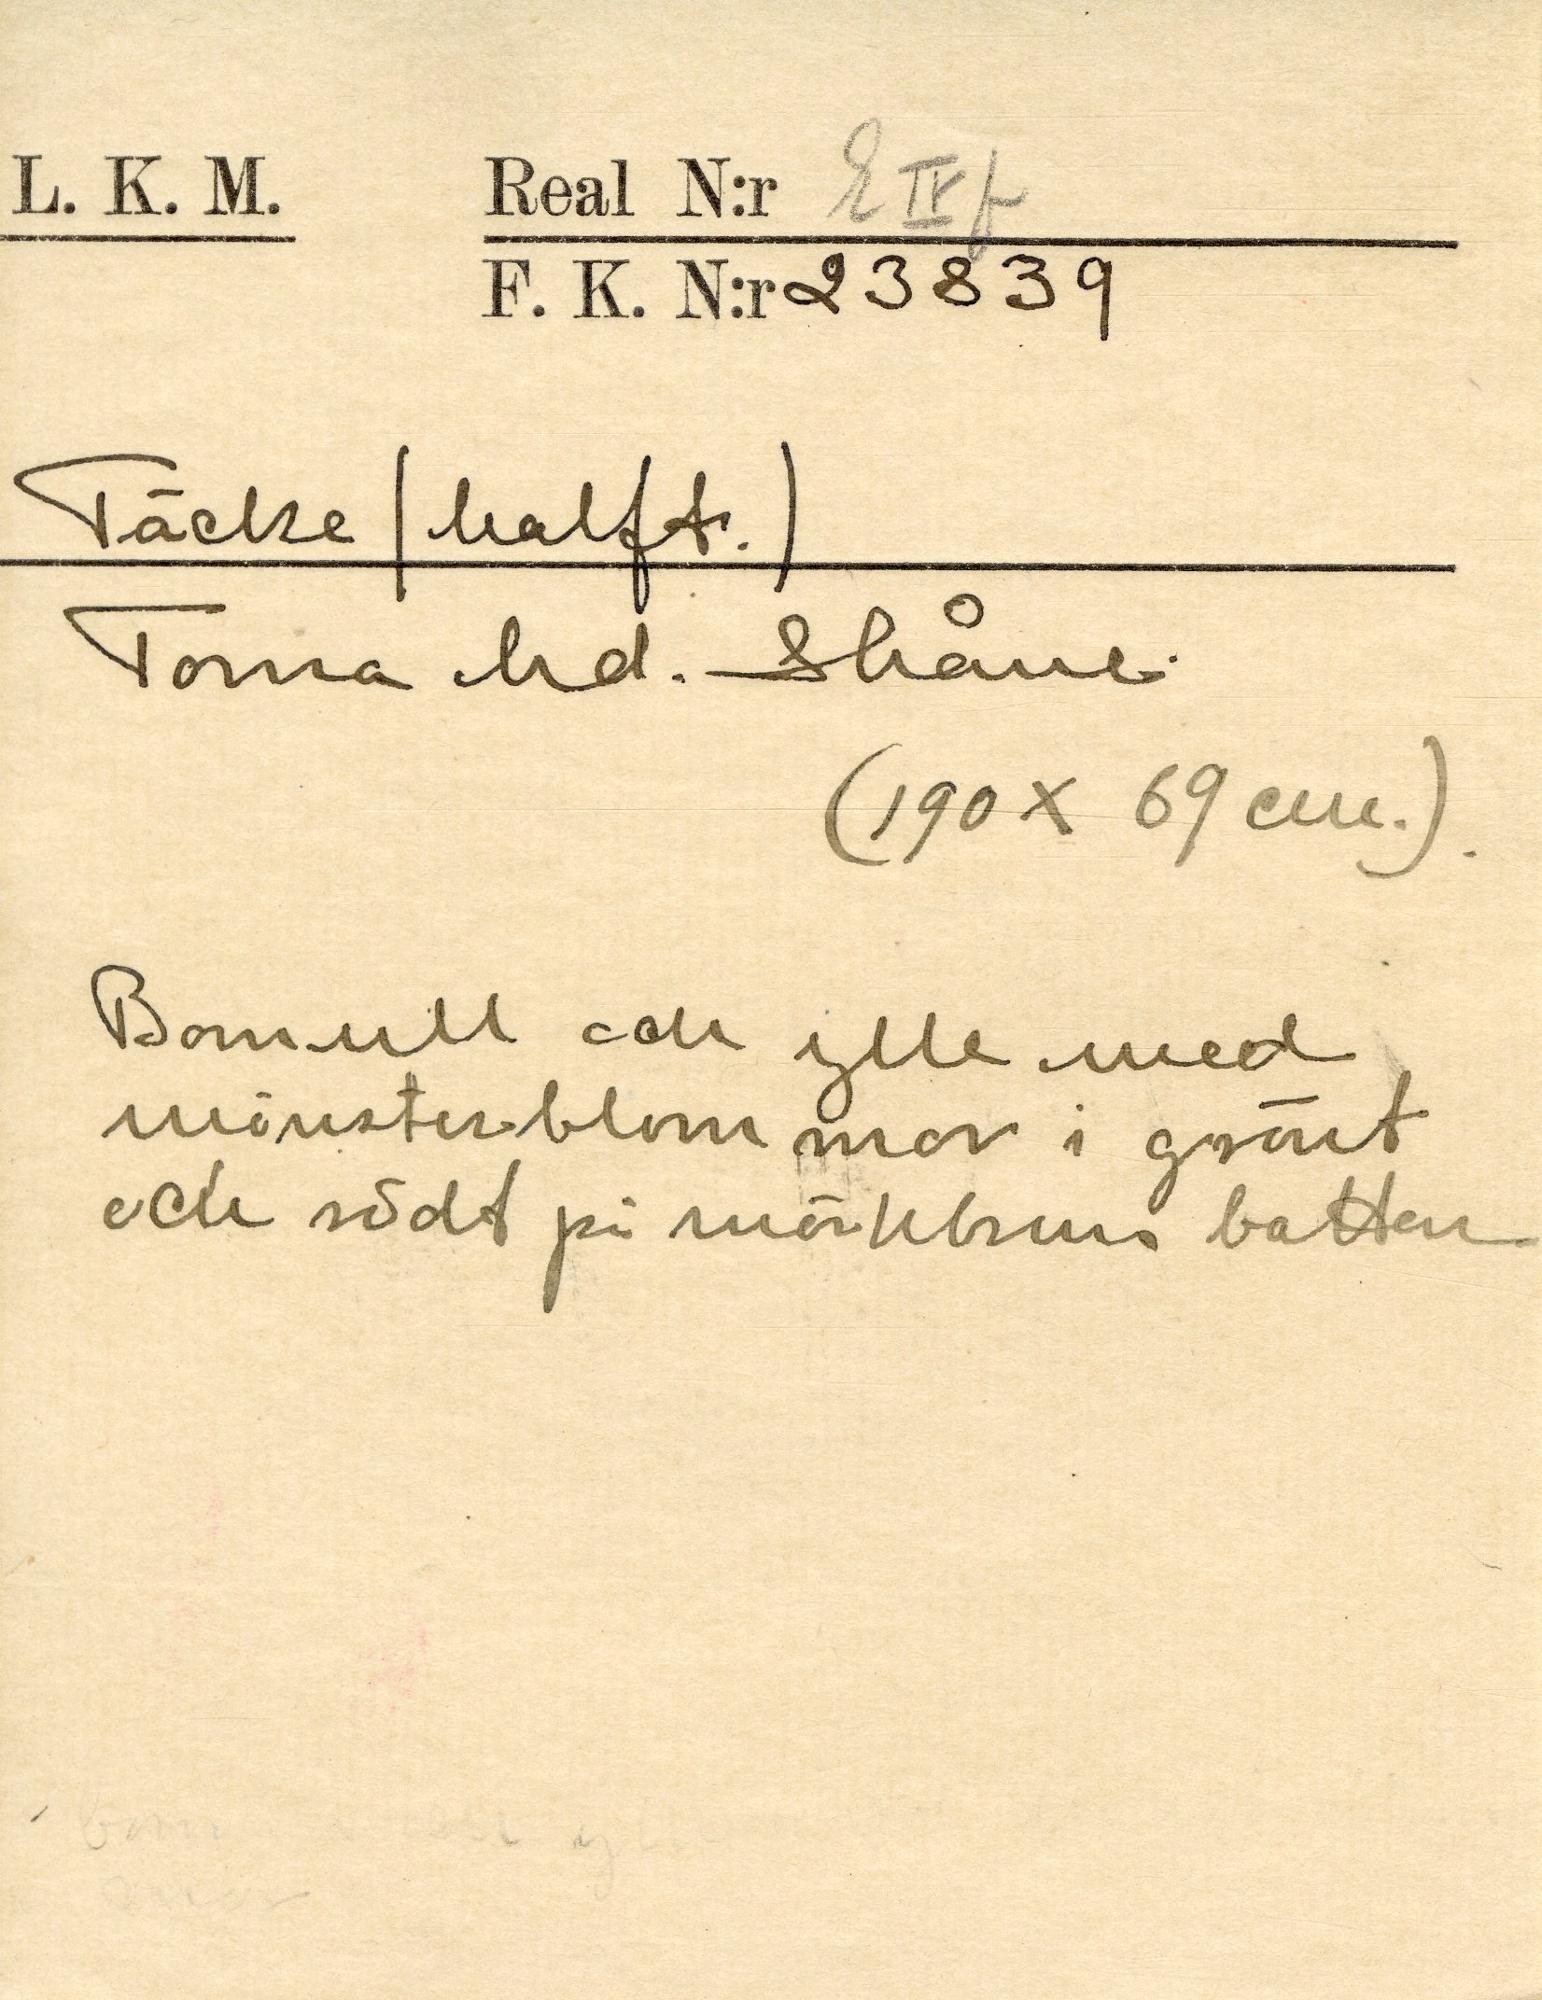 L. K. M. Real N:r E IV f
F. K. N:r 23839
Täcke (halft.)
Torna hd. Skåne.
(190 x 69 cm.).
Bomull och ylle med
mönsterblommor i grönt
och rödt på mörkbrun botten